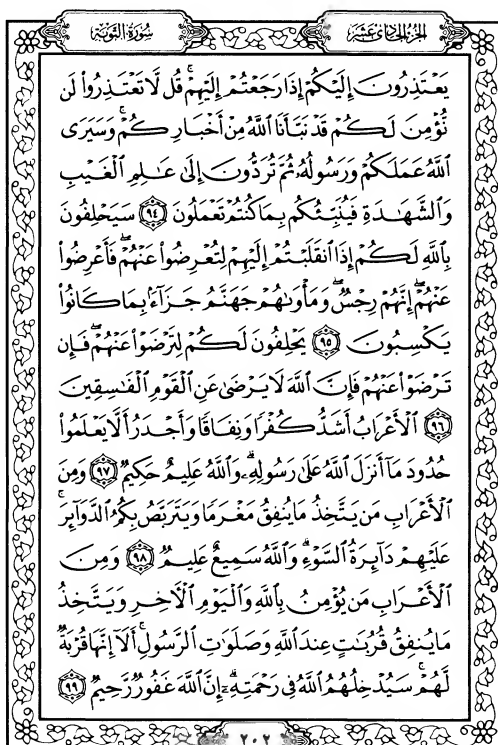 سُورَةُ التَّوْبَةِ
الجُزْءُ الحَادِيَ عَشَرَ
يَعْتَذِرُونَ إِلَيْكُمْ إِذَا رَجَعْتُمْ إِلَيْهِمْ ۚ قُل لَّا تَعْتَذِرُوا۟ لَن
نُّؤْمِنَ لَكُمْ قَدْ نَبَّأَنَا ٱللَّهُ مِنْ أَخْبَارِكُمْ ۚ وَسَيَرَى
ٱللَّهُ عَمَلَكُمْ وَرَسُولُهُۥ ثُمَّ تُرَدُّونَ إِلَىٰ عَٰلِمِ ٱلْغَيْبِ
وَٱلشَّهَٰدَةِ فَيُنَبِّئُكُم بِمَا كُنتُمْ تَعْمَلُونَ ٩٤ سَيَحْلِفُونَ
بِٱللَّهِ لَكُمْ إِذَا ٱنقَلَبْتُمْ إِلَيْهِمْ لِتُعْرِضُوا۟ عَنْهُمْ ۖ فَأَعْرِضُوا۟
عَنْهُمْ ۖ إِنَّهُمْ رِجْسٌ ۖ وَمَأْوَىٰهُمْ جَهَنَّمُ جَزَآءًۢ بِمَا كَانُوا۟
يَكْسِبُونَ ٩٥ يَحْلِفُونَ لَكُمْ لِتَرْضَوْا۟ عَنْهُمْ ۖ فَإِن
تَرْضَوْا۟ عَنْهُمْ فَإِنَّ ٱللَّهَ لَا يَرْضَىٰ عَنِ ٱلْقَوْمِ ٱلْفَٰسِقِينَ
٩٦ ٱلْأَعْرَابُ أَشَدُّ كُفْرًا وَنِفَاقًا وَأَجْدَرُ أَلَّا يَعْلَمُوا۟
حُدُودَ مَآ أَنزَلَ ٱللَّهُ عَلَىٰ رَسُولِهِۦ ۗ وَٱللَّهُ عَلِيمٌ حَكِيمٌ ٩٧ وَمِنَ
ٱلْأَعْرَابِ مَن يَتَّخِذُ مَا يُنفِقُ مَغْرَمًا وَيَتَرَبَّصُ بِكُمُ ٱلدَّوَآئِرَ ۚ
عَلَيْهِمْ دَآئِرَةُ ٱلسَّوْءِ ۗ وَٱللَّهُ سَمِيعٌ عَلِيمٌ ٩٨ وَمِنَ
ٱلْأَعْرَابِ مَن يُؤْمِنُ بِٱللَّهِ وَٱلْيَوْمِ ٱلْءَاخِرِ وَيَتَّخِذُ
مَا يُنفِقُ قُرُبَٰتٍ عِندَ ٱللَّهِ وَصَلَوَٰتِ ٱلرَّسُولِ ۚ أَلَآ إِنَّهَا قُرْبَةٌ
لَّهُمْ ۚ سَيُدْخِلُهُمُ ٱللَّهُ فِى رَحْمَتِهِۦٓ ۗ إِنَّ ٱللَّهَ غَفُورٌ رَّحِيمٌ ٩٩
٢٠٢